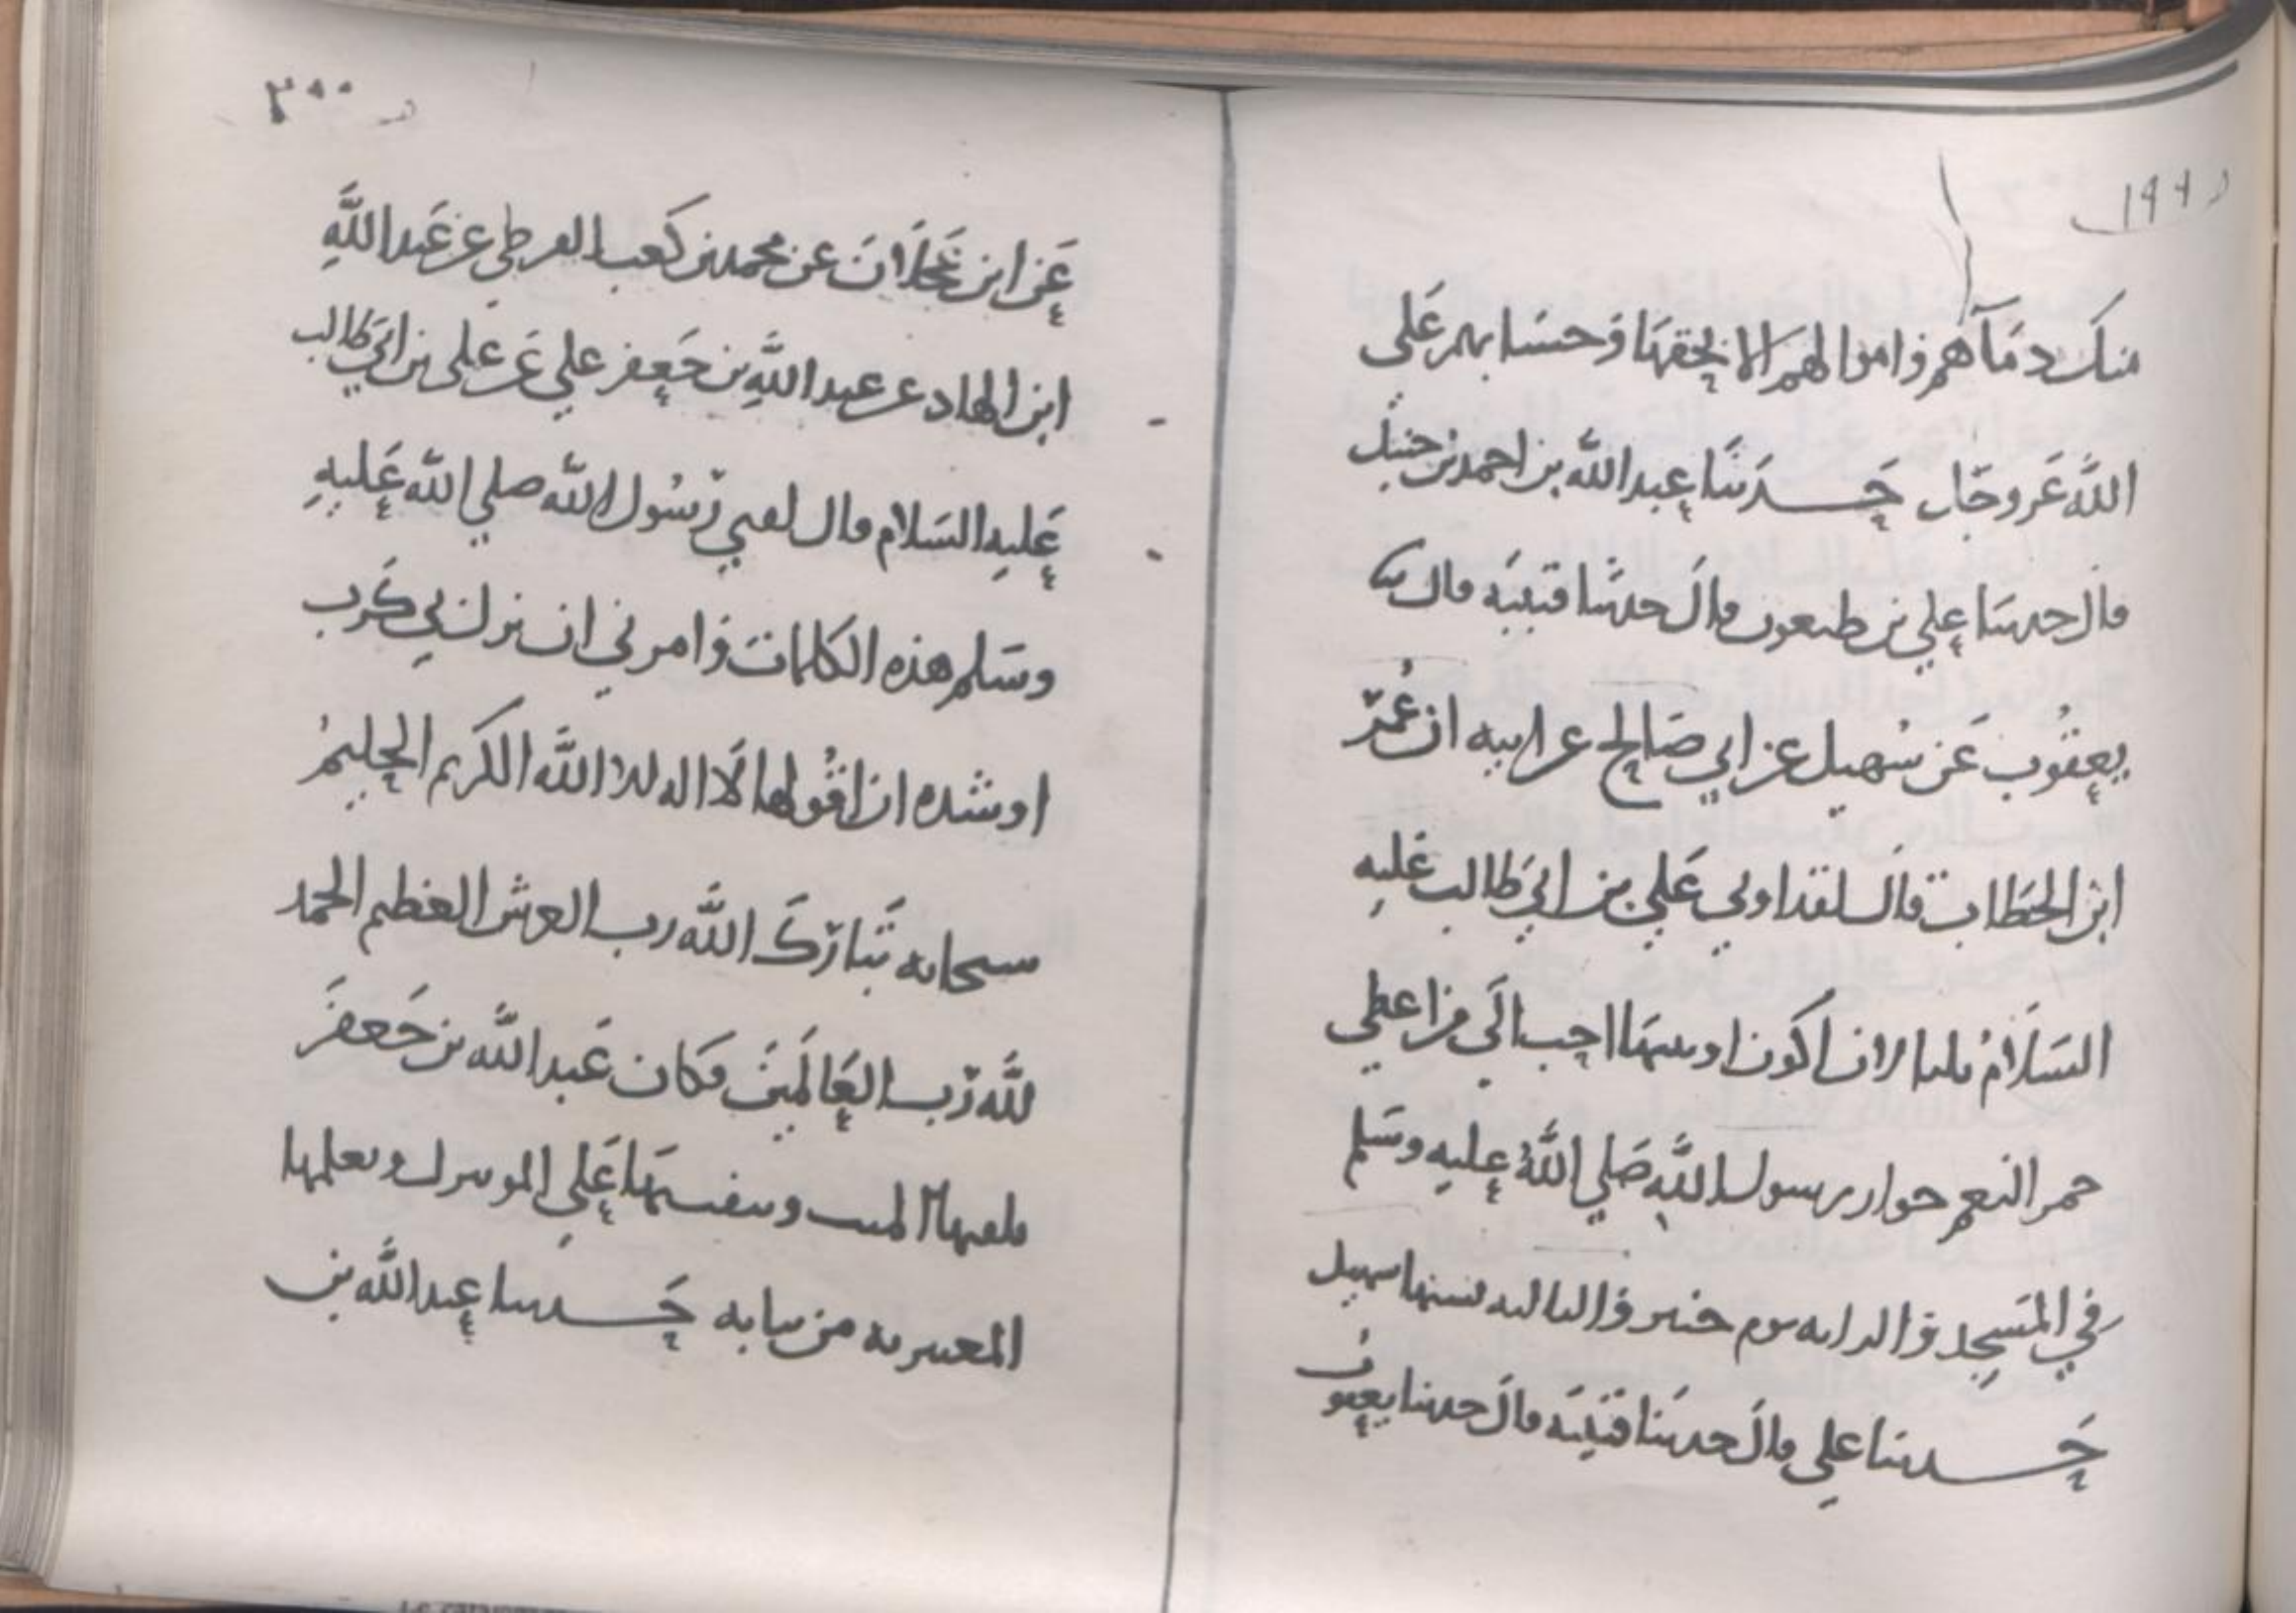 ١٩٩
منك دمآهم واموالهم الا بحقها وحسابهم على
الله عز وجل حدثنا عبد الله بن احمد بن حنبل
قال حدثنا علي بن طيفور قال حدثنا قتيبة قال
يعقوب عن سهيل عن ابي صالح عن ابيه ان عمر
ابن الخطاب قال لقد اوتي علي بن ابي طالب عليه
السلام ثلثا لان اكون اوتيتها احب الي من اعطي
حمر النعم جوار رسول الله صلي الله عليه وسلم
في المسجد والراية يوم خيبر والثالثة نسيها سهيل
حدثنا علي قال حدثنا قتيبة قال حدثنا يعقوب
٢٠٠
عن ابن عجلان عن محمد بن كعب القرظي عن عبد الله
ابن الهاد عن عبد الله بن جعفر علي عن علي بن ابي طالب
عليه السلام قال لقني رسول الله صلي الله عليه
وسلم هذه الكلمات وامرني ان نزل بي كرب
او شده ان اقولها لا اله الا الله الكريم الحليم
سبحانه تبارك الله رب العرش العظيم الحمد
لله رب العالمين فكان عبد الله بن جعفر
يلقنها الميت وينفث بها علي الموعوك ويعلمها
المغتربه من بناته حدثنا عبد الله بن